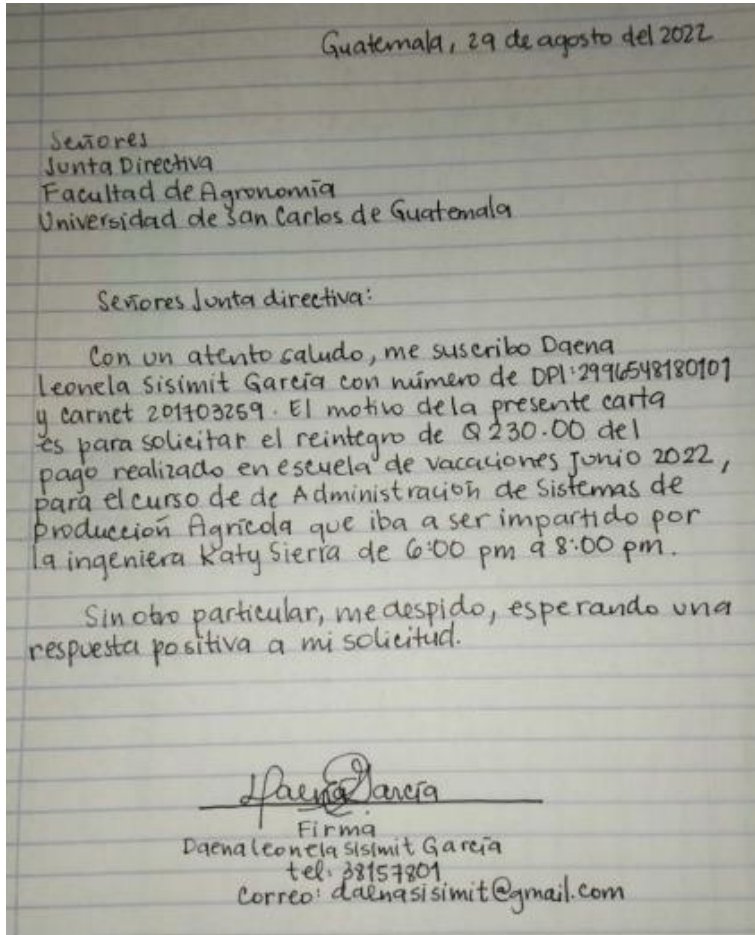 Guatemala, 29 de agosto del 2022
Señores
Junta Directiva
Facultad de Agronomía
Universidad de San Carlos de Guatemala
Señores Junta directiva:
Con un atento saludo, me suscribo Daena
Leonela Sisimit García con número de DPI: 2996548180101
y carnet 201703259. El motivo de la presente carta
es para solicitar el reintegro de Q 230.00 del
pago realizado en escuela de vacaciones junio 2022,
para el curso de de Administración de Sistemas de
producción Agrícola que iba a ser impartido por
la ingeniera Katy Sierra de 6:00 pm a 8:00 pm.
Sin otro particular, me despido, esperando una
respuesta positiva a mi solicitud.
Daena García
Firma
Daena Leonela Sisimit García
tel: 38157801
Correo: daenasisimit@gmail.com